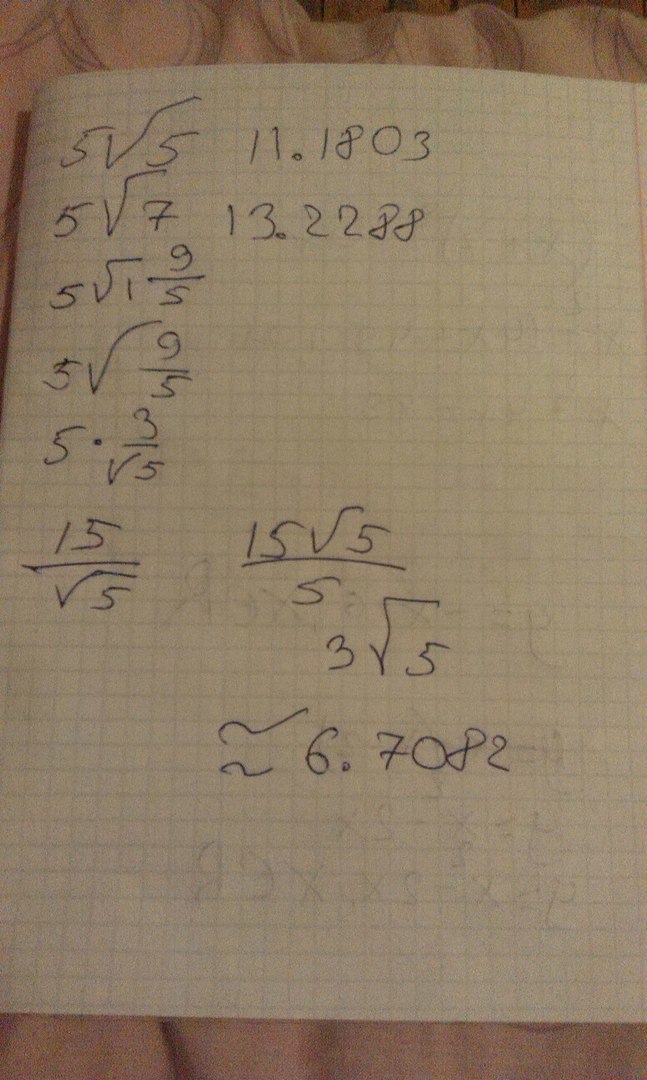 5√5 11.1803
5√7 13.2288
5√1 9/5
5√9/5
5 · 3/√5
15/√5 15√5/5
3√5
≈ 6.7082